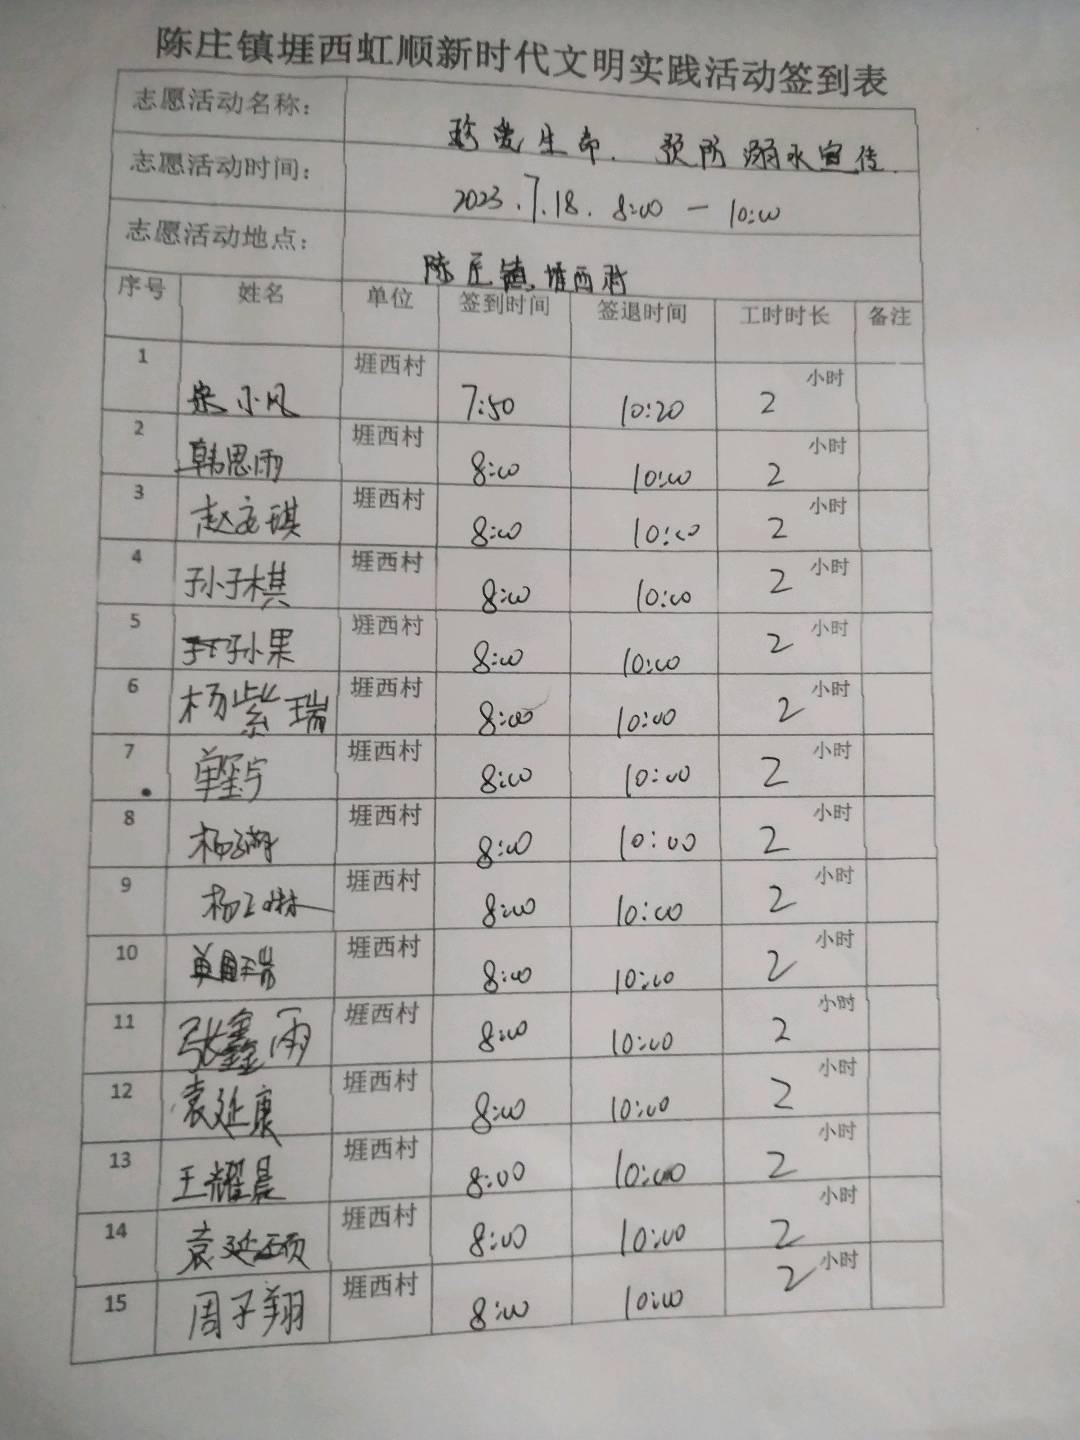 陈庄镇堐西虹顺新时代文明实践活动签到表
志愿活动名称： 珍爱生命. 预防溺水宣传.
志愿活动时间： 2023.7.18. 8:00 — 10:00
志愿活动地点： 陈庄镇.堐西村
序号 姓名 单位 签到时间 签退时间 工时时长 备注
1 小风 堐西村 7:50 10:20 2 小时
2 韩思雨 堐西村 8:00 10:00 2 小时
3 赵 琪 堐西村 8:00 10:00 2 小时
4 孙子棋 堐西村 8:00 10:00 2 小时
5 孙果 堐西村 8:00 10:00 2 小时
6 杨紫瑞 堐西村 8:00 10:00 2 小时
7 单 宁 堐西村 8:00 10:00 2 小时
8 杨 堐西村 8:00 10:00 2 小时
9 杨 堐西村 8:00 10:00 2 小时
10 单 瑞 堐西村 8:00 10:00 2 小时
11 张鑫雨 堐西村 8:00 10:00 2 小时
12 袁延康 堐西村 8:00 10:00 2 小时
13 王耀晨 堐西村 8:00 10:00 2 小时
14 袁延硕 堐西村 8:00 10:00 2 小时
15 周子翔 堐西村 8:00 10:00 2 小时